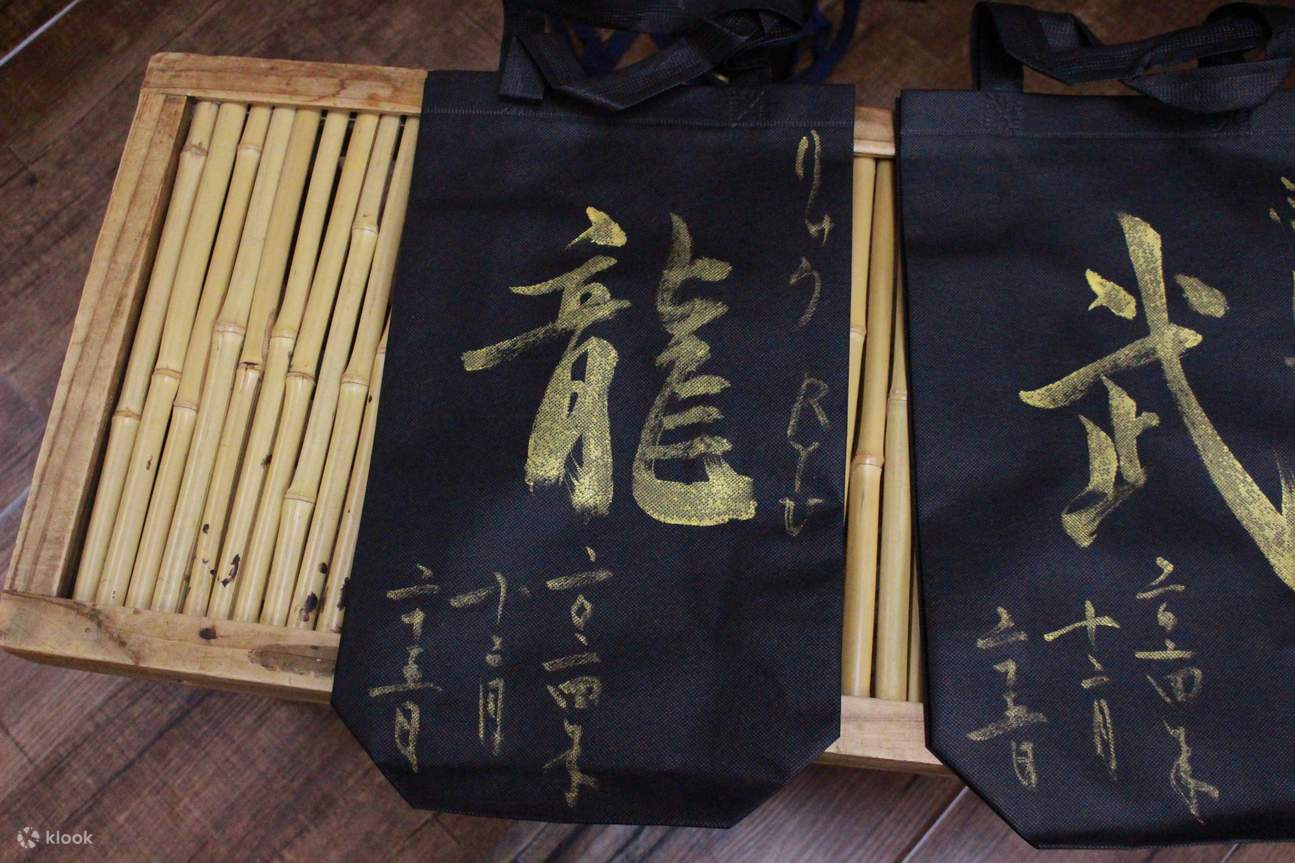 りゅう RYU
龍
二〇二四年
十二月
二十五日
武
二〇二四年
十二月
二十五日
klook